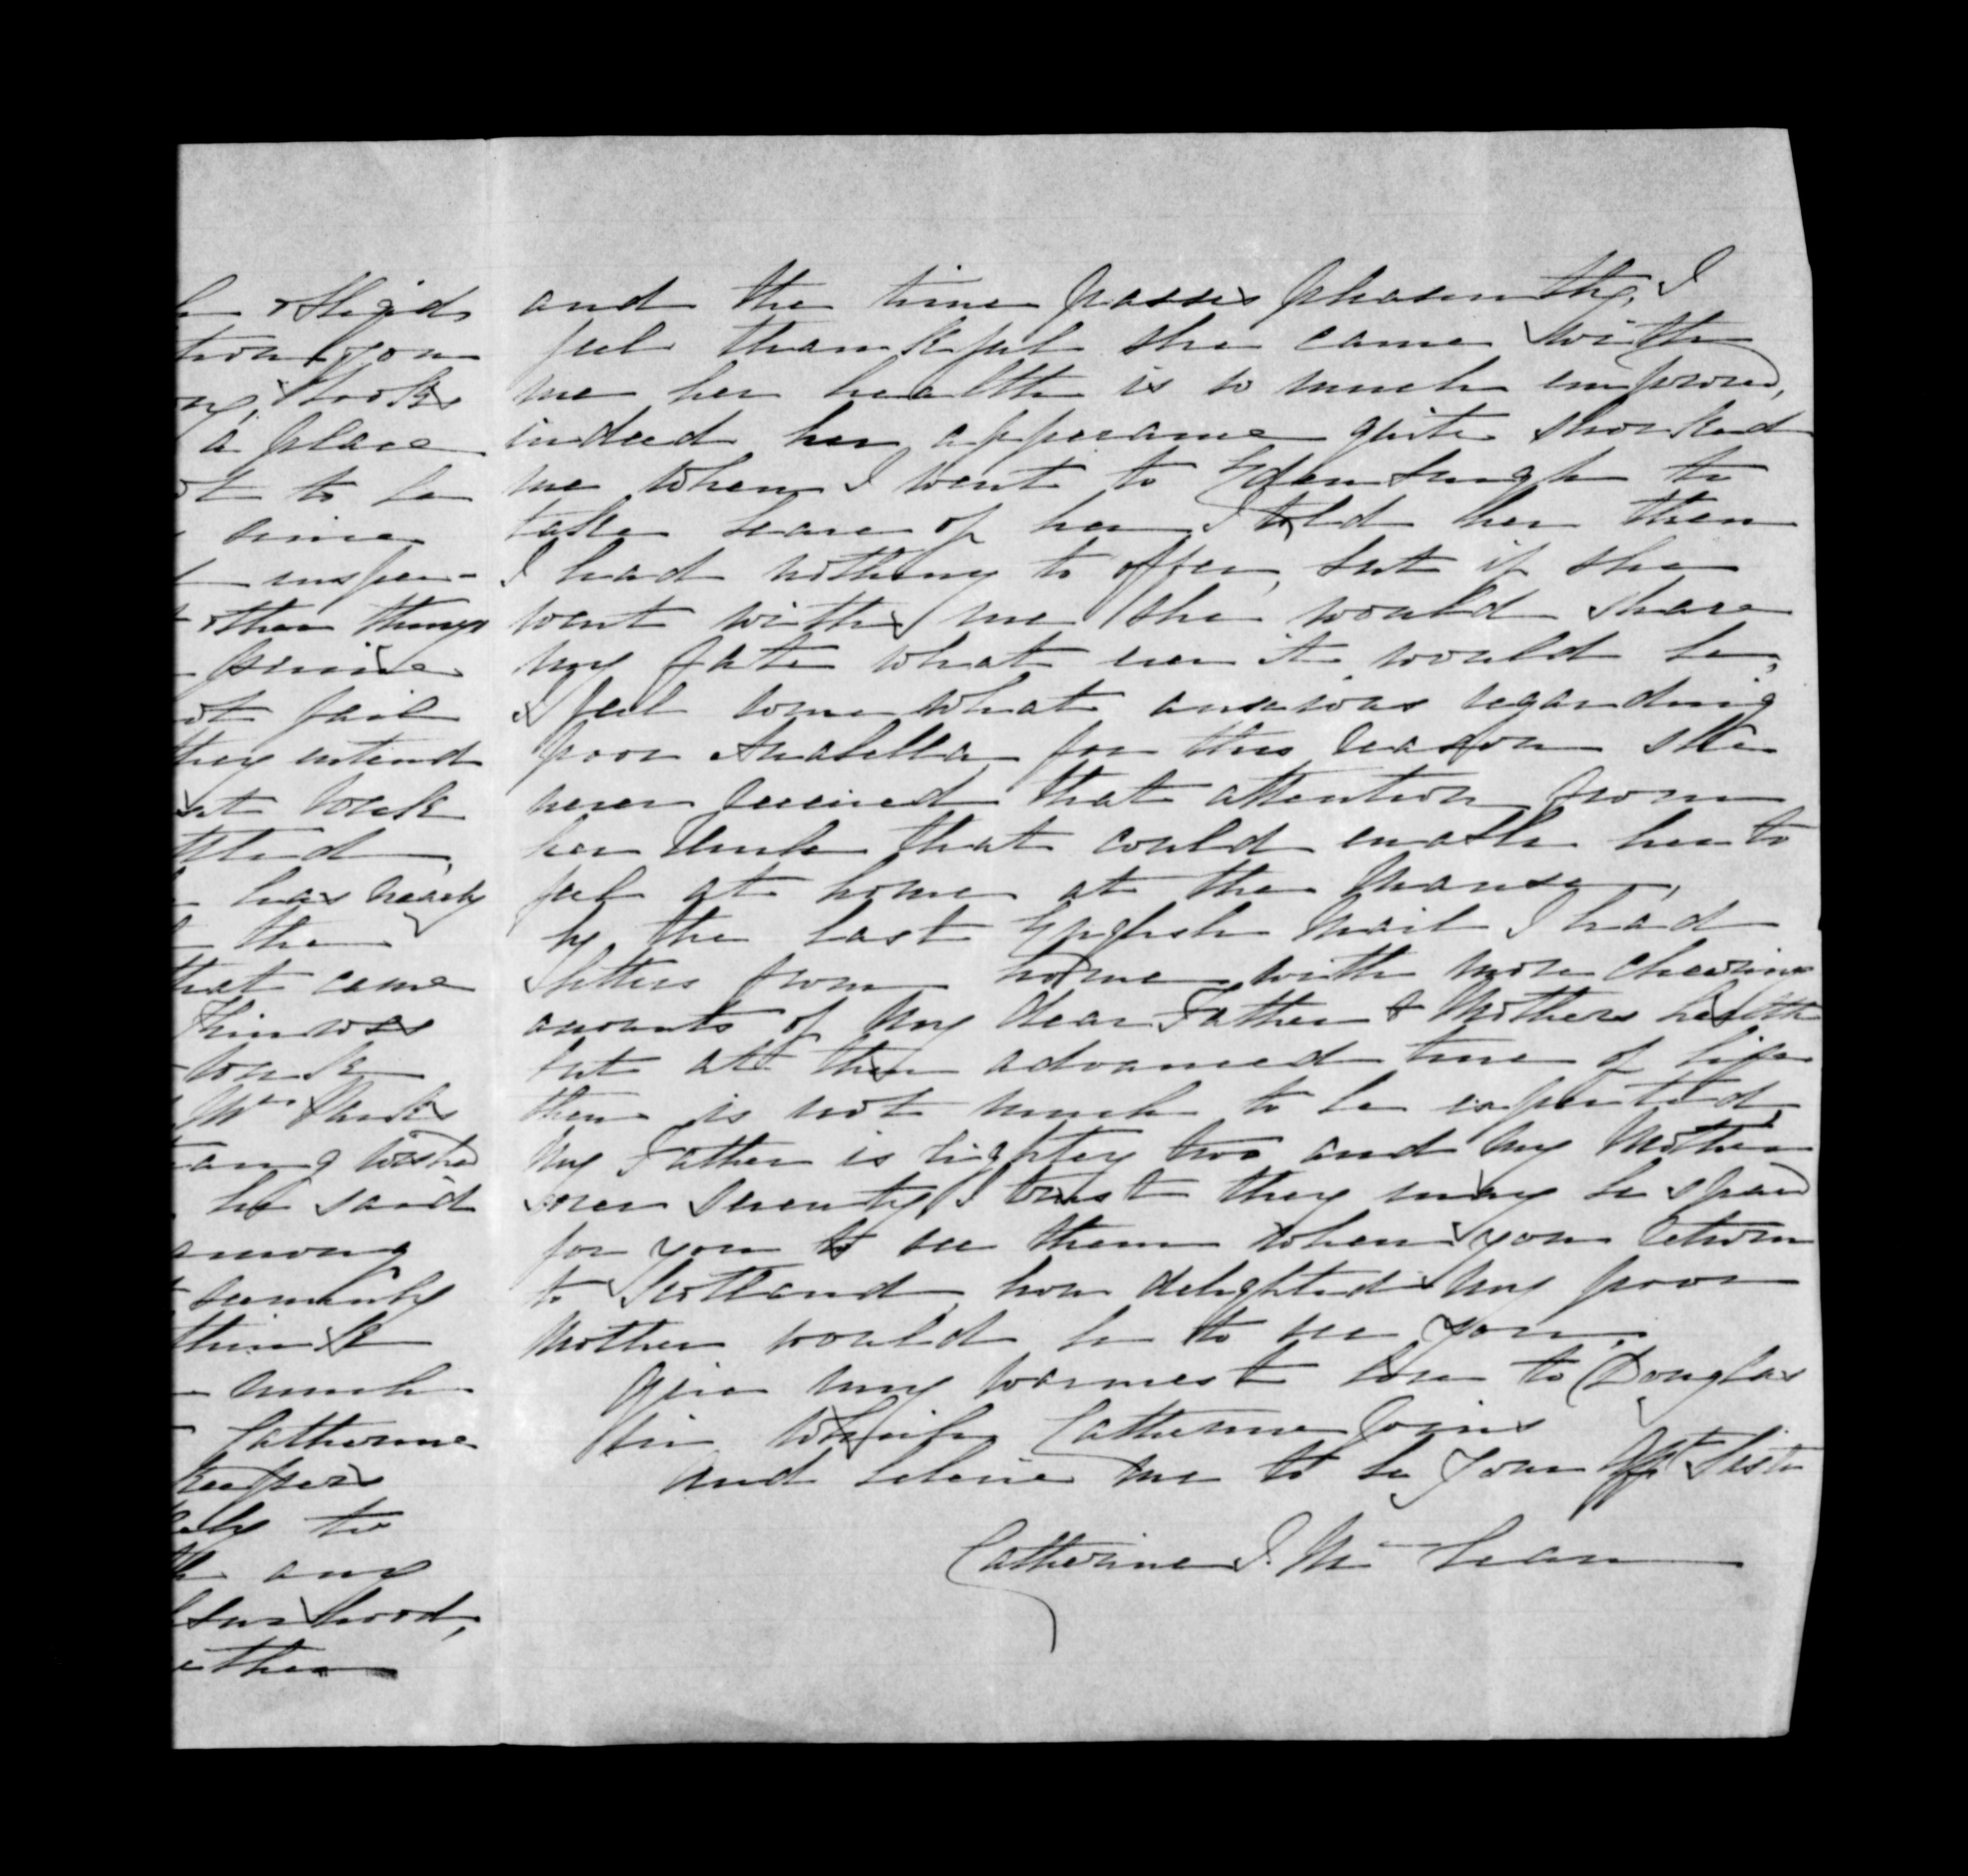 & obliged
tion you
ong, took
a place
ot to be
since
inspec-
other things
service
not fail
they intend
next week
has nearly
the
that came
Thinwas
took
Mrs
wished
he said
among
seemingly
think
much
Catherine
keepers
to
any
hood,
either
and the time passes pleasently, I
feel thankful she came with
me her health is so much improved,
indeed her appearance quite shocked
me when I went to Edenburgh to
take leave of her I told her then
I had nothing to offer, but if she
went with me she would share
my fate what ever it would be,
I feel some what anxious regarding
poor Anabella for this reason she
never received that attention from
her Uncle that could enable her to
feel at home at the Manse,
by the last English Mail I had
letters from home with more cheering
acounts of my dear Father & Mothers health
but att their advanced time of life
there is not much to be expected,
My Father is eightey two and my Mother
over seventy, I trust they may be spared
for you to see them when you return
to Scotland, how delighted my poor
Mother would be to see you,
give my warmest love to Douglas
in which Catherine Joins
and beleive me to be your afft Sister
Catherine I. McLean